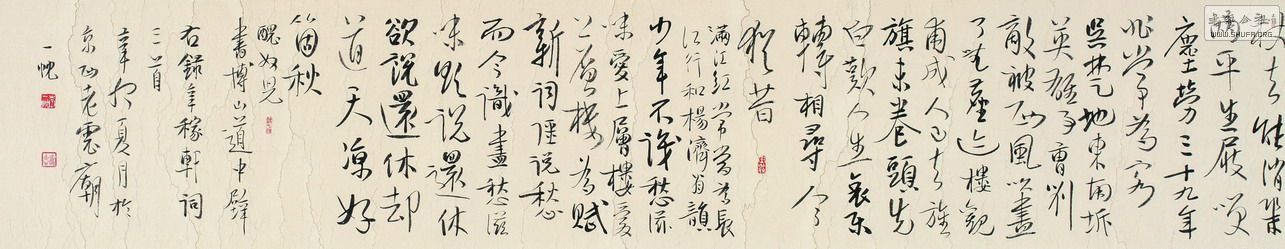 杖去能消幾
緉平生屐笑
塵勞三十九年
非常為客
吳楚地東南坼
英雄事曹劉
敵被西風吹盡
了無塵迹樓觀
甫成人已去旌
旗未卷頭先
白歎人生哀樂
轉相尋今
猶昔
滿江紅 常當為長
江行和楊濟翁韻
少年不識愁滋
味愛上層樓愛
上層樓為賦
新詞強說愁
而今識盡愁滋
味欲說還休
欲說還休卻
道天涼好
箇秋
醜奴兒
書博山道中壁
右錄辛稼軒詞
二首
辛卯夏月於
京西老虎廟
WWW.SHUFA.ORG